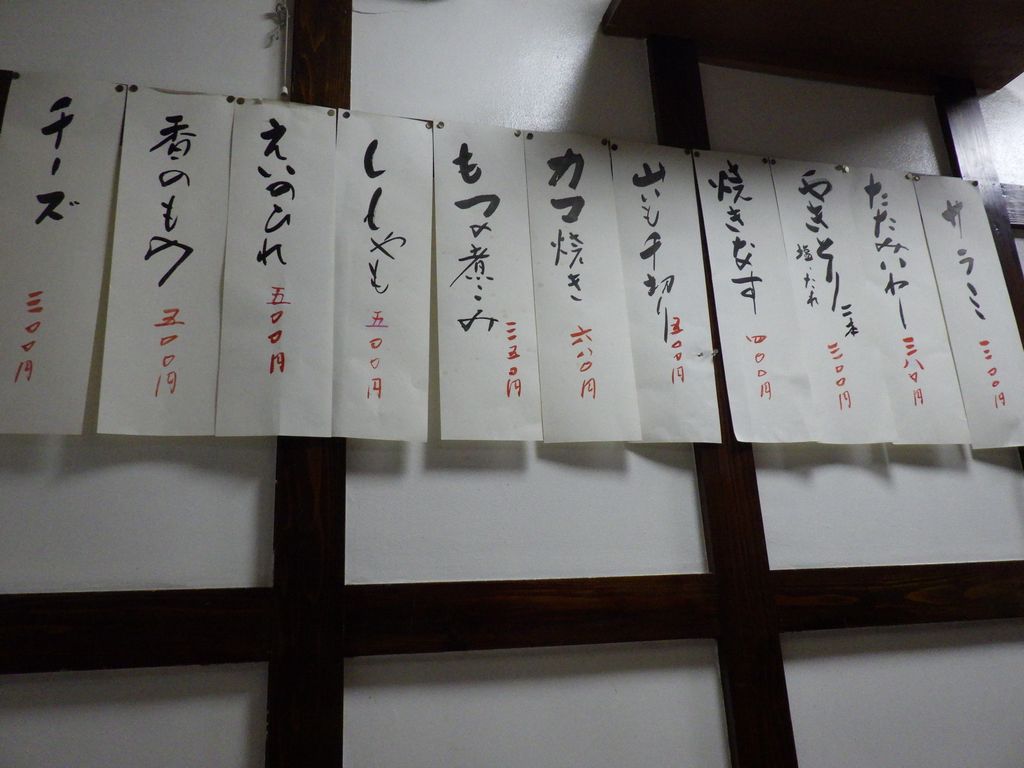 サラミ 三〇〇円
たたみいわし 三八〇円
やきとり 塩・たれ 二本 三〇〇円
焼きなす 四〇〇円
山いも千切り 五〇〇円
カマ焼き 六八〇円
もつ煮こみ 三五〇円
ししゃも 五〇〇円
えいのひれ 五〇〇円
香のもの 五〇〇円
チーズ 三〇〇円